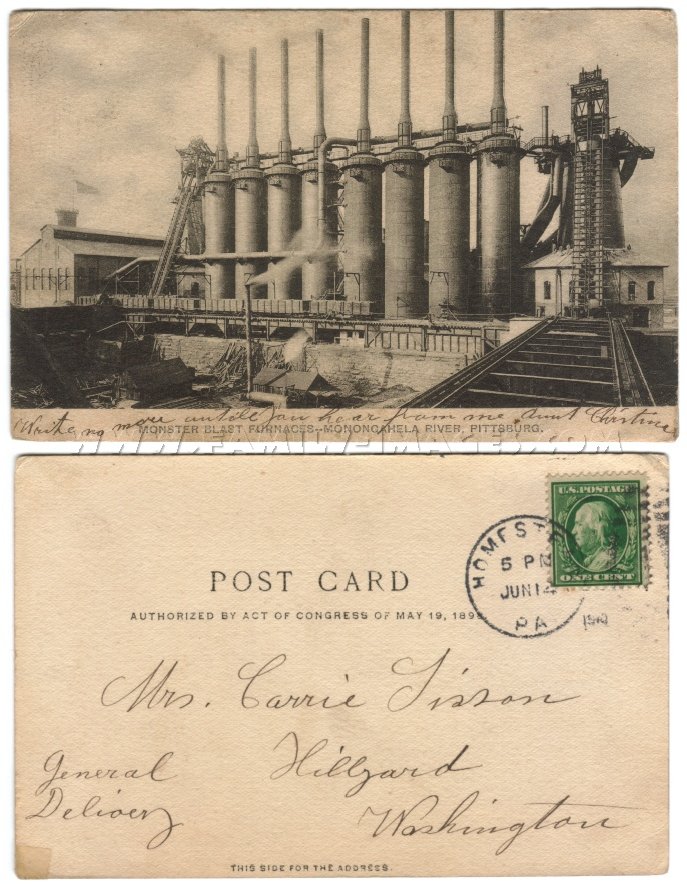 (Write no more untill you hear from me, Aunt Christina
MONSTER BLAST FURNACES--MONONGAHELA RIVER, PITTSBURG.
WWW.FAMILYIMAGES.COM
U.S. POSTAGE
ONE CENT
5 PM
JUN 14
PA
POST CARD
AUTHORIZED BY ACT OF CONGRESS OF MAY 19, 1898
Mrs. Carrie Sisson
General Hillyard
Delivery Washington
THIS SIDE FOR THE ADDRESS.